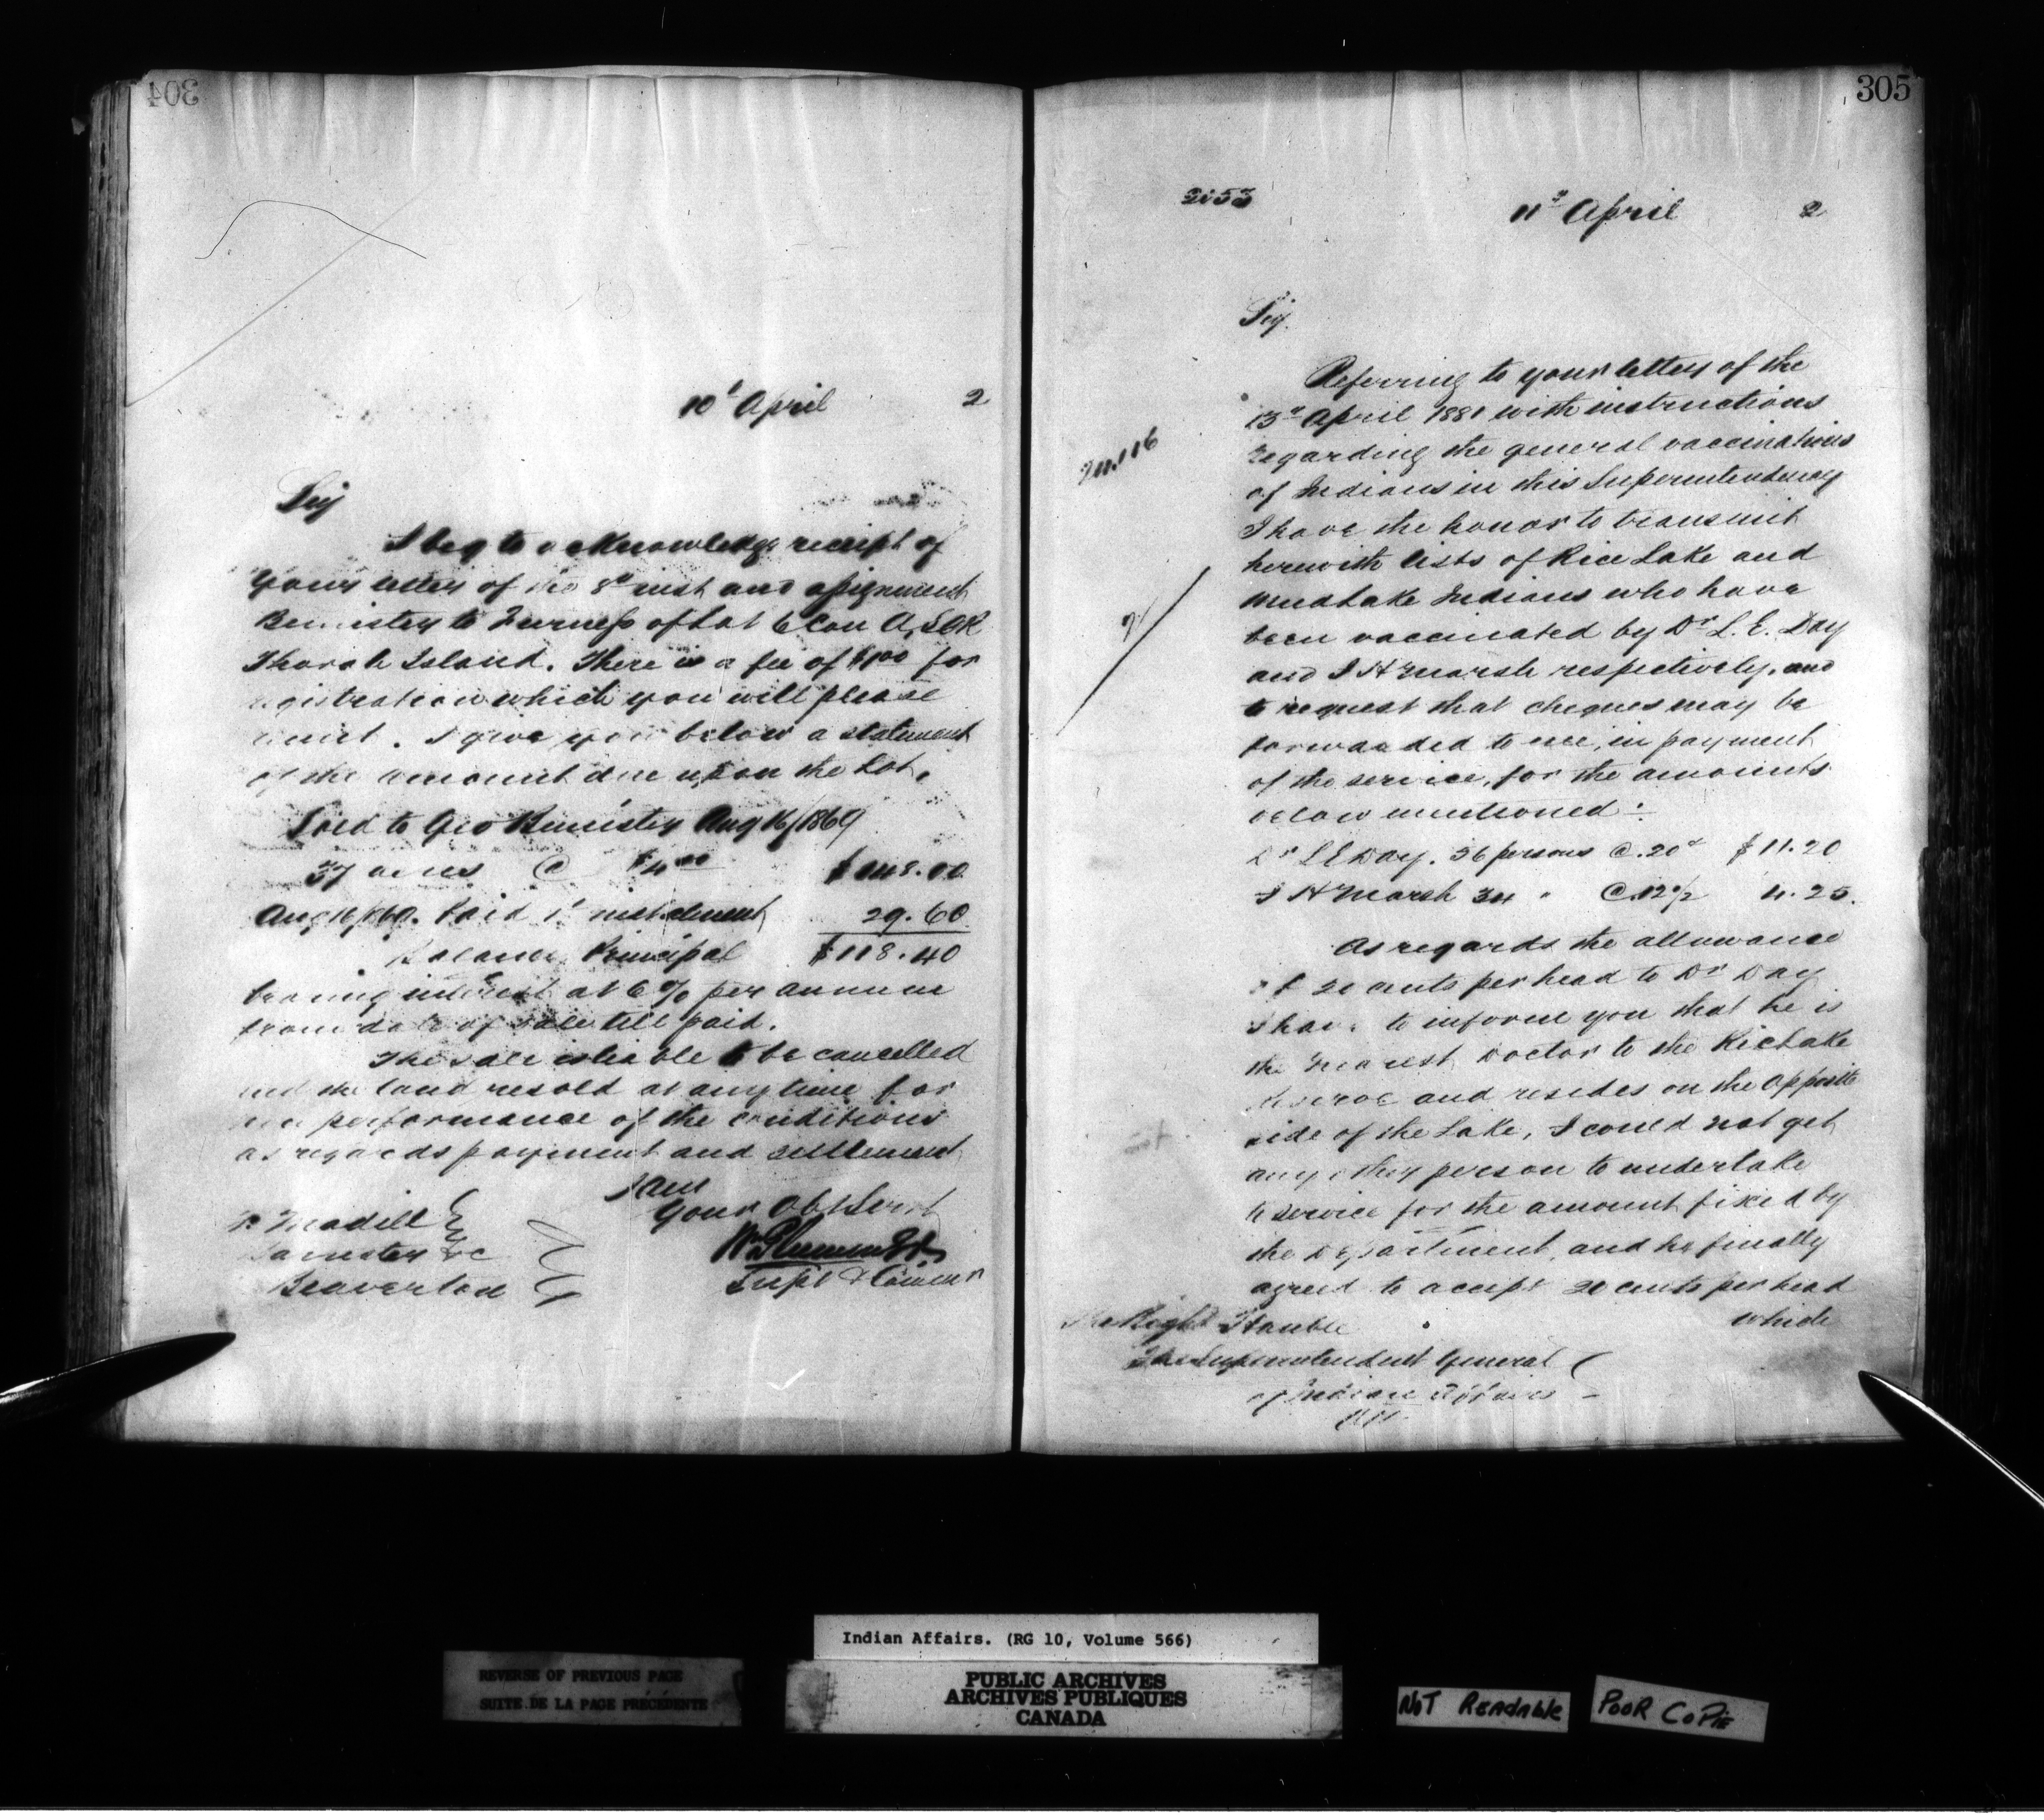 304
10t April 2
Sir
I beg to acknowledge receipt of
your letter of the 8th inst and assignment
Bannister to Furness of Lot 6 Con A, SCR
Thorah Island. There is a fee of $1.00 for
registration which you will please
remit. I give you below a statement
of the amount due upon the Lot.
Sold to Geo Bannister Aug 16/1869
37 acres @ $4.00 $148.00
Aug 16/69. Paid 1st instalment 29.60
Balance Principal $118.40
bearing interest at 6% per annum
from date of sale till paid.
The sale is liable to be cancelled
and the land resold at any time for
non performance of the conditions
as regards payment and settlement
I am
Your Obt Servt
Wm Plummer
Supt & Commr
Madill
Barrister &c
Beaverton
305
2153
11th April 2
Sir.
Referring to your letter of the
13th April 1881 with instructions
regarding the general vaccinations
of Indians in this Superintendency
I have the honor to transmit
herewith lists of Rice Lake and
Mud Lake Indians who have
been vaccinated by Dr L. E. Day
and J H Marsh respectively, and
to request that cheques may be
forwarded to me, in payment
of the service, for the amounts
below mentioned :-
Dr L E Day. 56 persons @ .20c $11.20
J H Marsh 34 " @ .12 1/2 4.25.
As regards the allowance
of 20 cents per head to Dr Day
I have to inform you that he is
the nearest Doctor to the Rice Lake
Reserve and resides on the opposite
side of the Lake, I could not get
any other person to undertake
the service for the amount fixed by
the Department, and he finally
agreed to accept 20 cents per head
which
The Right Honble
The Superintendent General
of Indian Affairs
Indian Affairs. (RG 10, Volume 566)
REVERSE OF PREVIOUS PAGE
SUITE DE LA PAGE PRÉCÉDENTE
PUBLIC ARCHIVES
ARCHIVES PUBLIQUES
CANADA
NOT READABLE
POOR COPIE